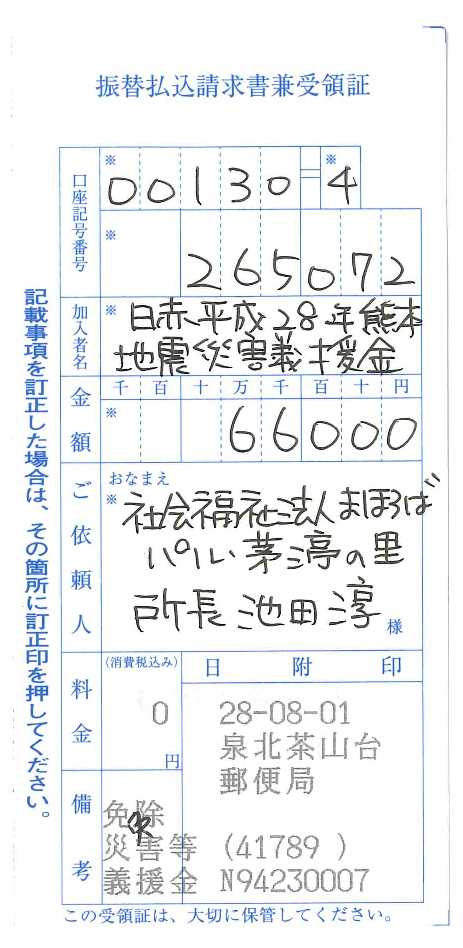 振替払込請求書兼受領証
口座記号番号
※ 00130 ※ 4
※ 265072
加入者名
※ 日赤平成28年熊本
地震災害義援金
金額
千 百 十 万 千 百 十 円
※ 66000
ご依頼人
おなまえ
※ 社会福祉法人まほろば
パル・茅渟の里
所長 池田淳 様
料金
(消費税込み)
0
円
日 附 印
28-08-01
泉北茶山台
郵便局
備考
免除
災害等 (41789 )
義援金 N94230007
この受領証は、大切に保管してください。
記載事項を訂正した場合は、その箇所に訂正印を押してください。